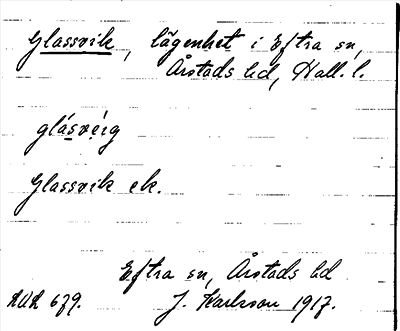 Glassvik, lägenhet i Eftra sn,
Årstads hd, Hall. l.
glásve̍rg
Glassvik ek.
Eftra sn, Årstads hd
679. J. Karlsson 1917.